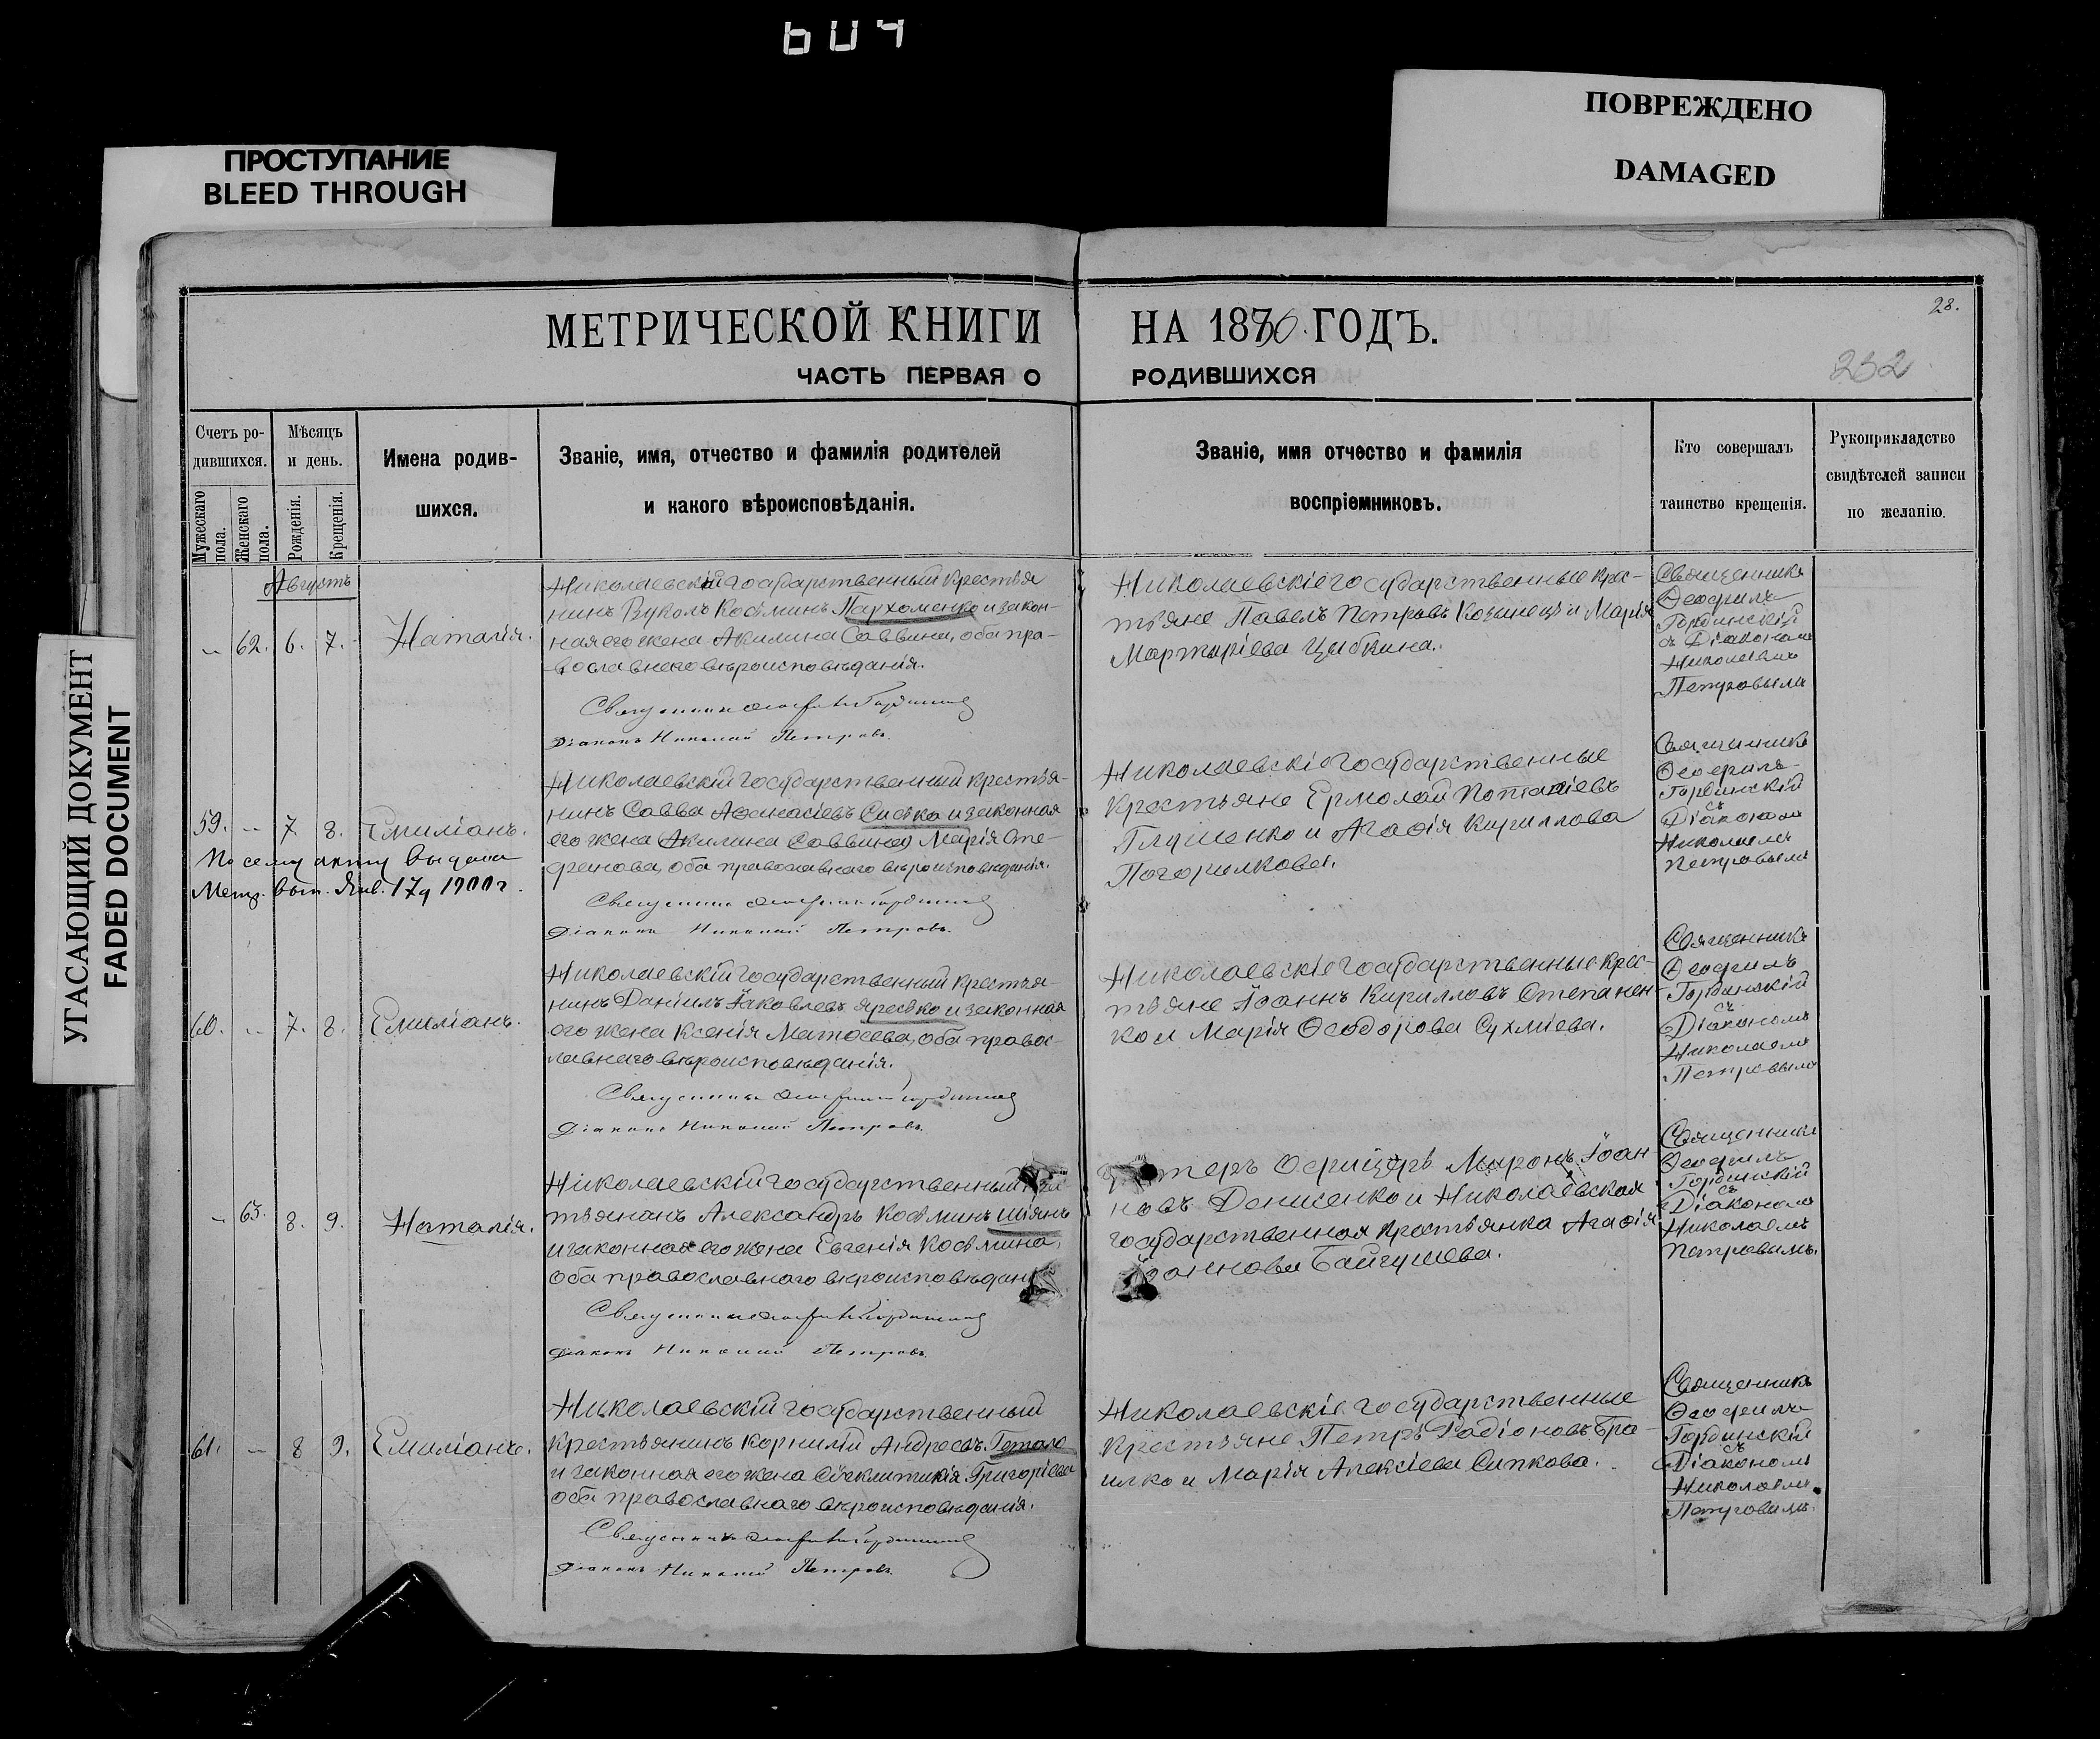 604
ПРОСТУПАНИЕ
BLEED THROUGH
ПОВРЕЖДЕНО
DAMAGED
УГАСАЮЩИЙ ДОКУМЕНТ
FADED DOCUMENT
28.
232
МЕТРИЧЕСКОЙ КНИГИ НА 1880 ГОДЪ.
ЧАСТЬ ПЕРВАЯ О РОДИВШИХСЯ
Счетъ ро-
дившихся.
Мужескаго пола.
Женскаго пола.
Мѣсяцъ
и день.
Рожденія.
Крещенія.
Имена родив-
шихся.
Званіе, имя, отчество и фамилія родителей
и какого вѣроисповѣданія.
Званіе, имя отчество и фамилія
воспріемниковъ.
Кто совершалъ
таинство крещенія.
Рукоприкладство
свидѣтелей записи
по желанію.
Августъ
– 62. 6. 7. Наталія.
Николаевскій государственный крестья
нинъ Вуколъ Косьминъ Пархоменко и закон-
ная его жена Акилина Саввина, оба пра-
вославнаго вѣроисповѣданія.
Священникъ Феофилъ Гординскій
Діаконъ Николай Петровъ.
Николаевскіе государственные крес-
тьяне Павелъ Петровъ Козинецъ и Марія
Мартиріева Цибкина.
Священникъ
Феофилъ
Гординскій
съ Діакономъ
Николаемъ
Петровымъ
59. – 7. 8. Емиліанъ.
По сему акту выдана
Метр. вып. Янв. 17 д 1900 г.
Николаевскій государственный крестья-
нинъ Савва Аѳанасіевъ Сиѣко и законная
его жена Акилина Саввина Марія Сте-
фанова, оба православнаго вѣроисповѣданія.
Священникъ Феофилъ Гординскій
Діаконъ Николай Петровъ.
Николаевскіе государственные
крестьяне Ермолай Потапіевъ
Глушенко и Агаѳія Кириллова
Погорилкова.
Священникъ
Феофилъ
Гординскій
съ
Діакономъ
Николаемъ
Петровымъ
60. – 7. 8. Емиліанъ.
Николаевскій государственный крестья-
нинъ Даніилъ Іаковлевъ Яресько и законная
его жена Ксенія Матѳеева, оба правос-
лавнаго вѣроисповѣданія.
Священникъ Феофилъ Гординскій
Діаконъ Николай Петровъ.
Николаевскіе государственные крес-
тьяне Іоаннъ Кирилловъ Степанен-
ко и Марія Ѳеодорова Сухміева.
Священникъ
Феофилъ
Гординскій
съ
Діакономъ
Николаемъ
Петровымъ
– 63. 8. 9. Наталія.
Николаевскій государственный
тьянинъ Александръ Косьминъ Шіянъ
и законная его жена Евгенія Косьмина,
оба православнаго вѣроисповѣдан
Священникъ Феофилъ Гординскій
Діаконъ Николай Петровъ.
теръ Офицеръ Миронъ Іоан
новъ Денисенко и Николаевская
государственная крестьянка Агаѳія
Іоаннова Байгушева.
Священникъ
Феофилъ
Гординскій
съ
Діакономъ
Николаемъ
Петровымъ.
61. – 8 9. Емиліанъ.
Николаевскій государственный
крестьянинъ Корнилій Андреевъ Гетало
и законная его жена Сѵнклитикія Григоріева
оба православнаго вѣроисповѣданія.
Священникъ Феофилъ Гординскій
Діаконъ Николай Петровъ.
Николаевскіе государственные
крестьяне Петръ Радіоновъ Бра-
илко и Марія Алексіева Сипкова.
Священникъ
Феофилъ
Гординскій
съ
Діакономъ
Николаемъ
Петровымъ.